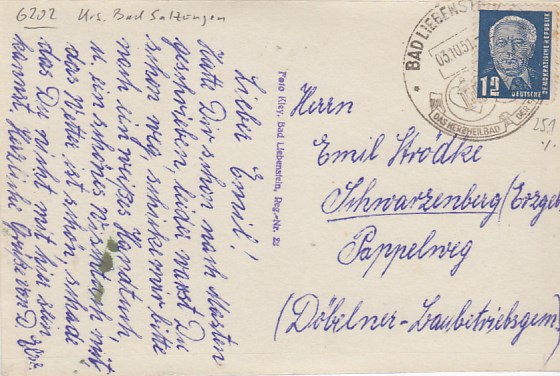 6202 Krs. Bad Salzungen
Lieber Emil!
Hatte Dir schon nach Mosten
geschrieben, leider warst Du
schon weg, schicke mir bitte
noch ein weißes Handtuch
u. ein schönes
das Wetter ist schön, schade
das Du nicht mit hier sein
kannst Herzliche Grüße von D.
Foto Kley, Bad Liebenstein, Reg.-Nr. 22
BAD LIEBENSTEIN
03.10.51
DAS HERZHEILBAD DER
12
DEUTSCHE DEMOKRATISCHE REPUBLIK
251
Herrn
Emil Strödke
Schwarzenberg/Erzgeb
Pappelweg
(Döbelner-Baubetriebsgem.